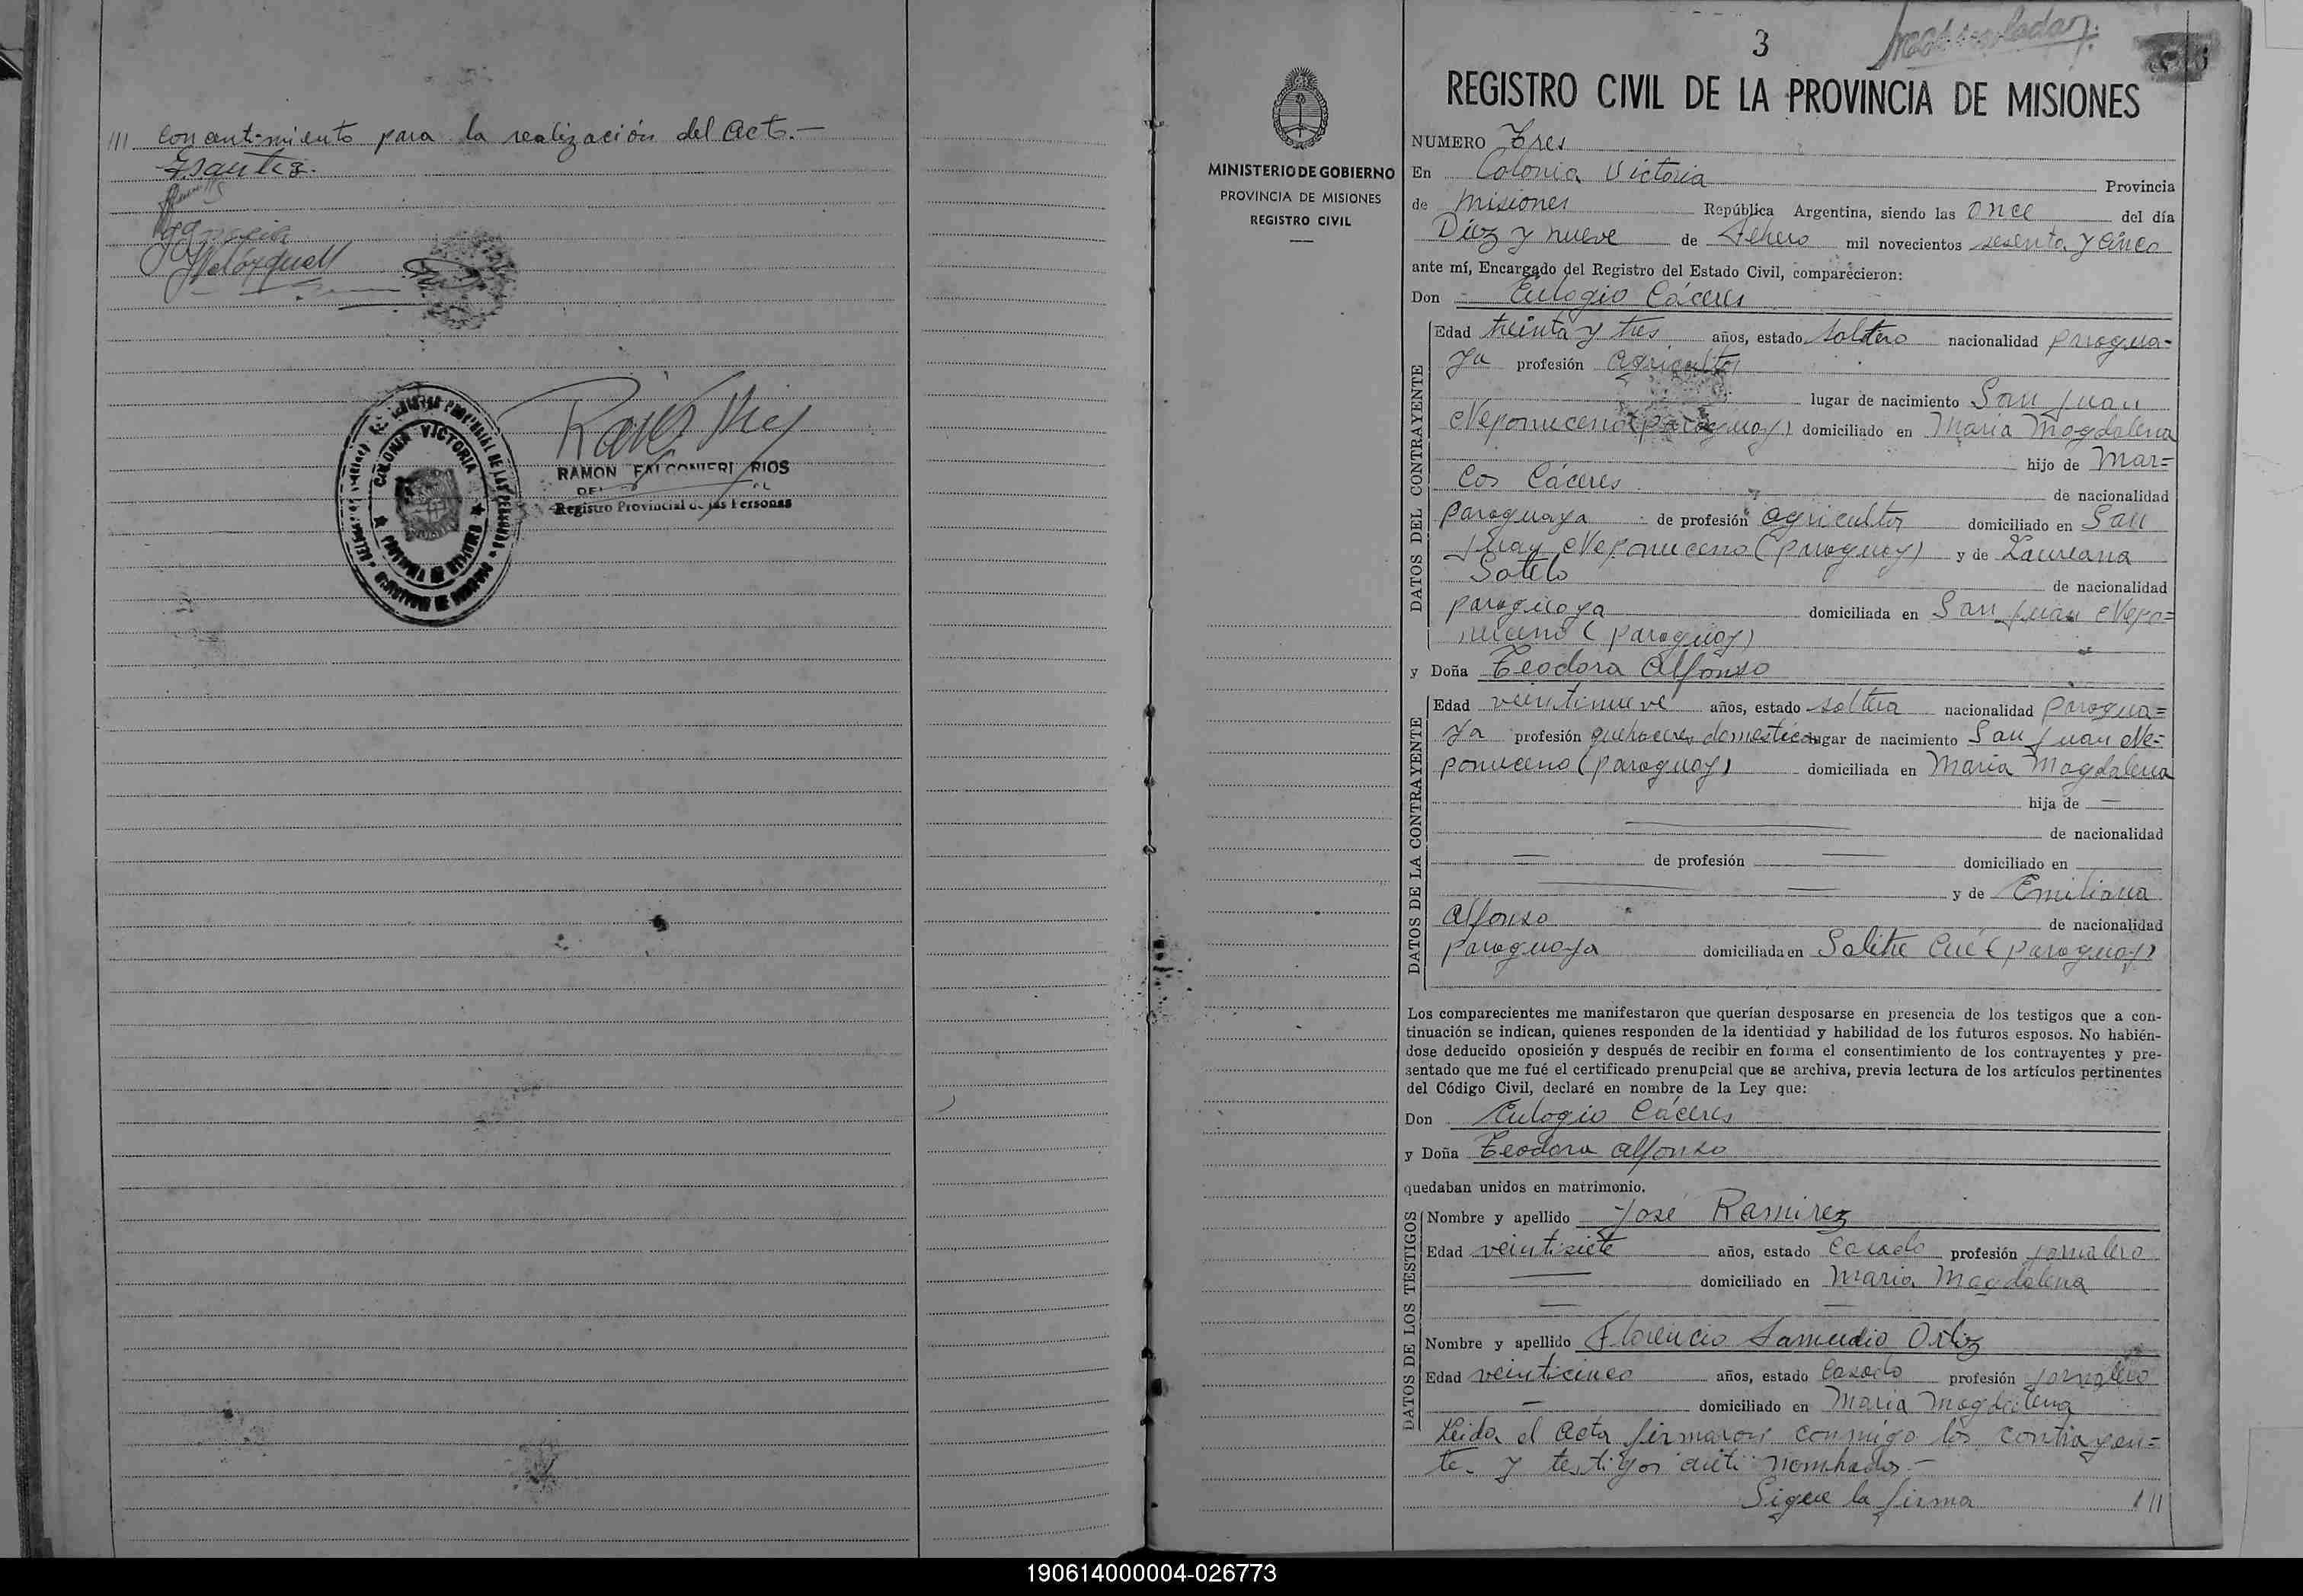 /// concentimiento para la realización del Acto.—
RAMON FALCONIERI RIOS
Registro Provincial de las Personas
COLONIA VICTORIA
3
REGISTRO CIVIL DE LA PROVINCIA DE MISIONES
MINISTERIO DE GOBIERNO
PROVINCIA DE MISIONES
REGISTRO CIVIL
NUMERO Tres
En Colonia Victoria Provincia
de Misiones República Argentina, siendo las Once del día
Diez y nueve de Febrero mil novecientos sesenta y cinco
ante mí, Encargado del Registro del Estado Civil, comparecieron:
Don Eulogio Cáceres
DATOS DEL CONTRAYENTE
Edad treinta y tres años, estado soltero nacionalidad paragua-
ya profesión agricultor
lugar de nacimiento San Juan
Nepomuceno (paraguay) domiciliado en Maria Magdalena
hijo de Mar=
cos Cáceres de nacionalidad
paraguaya de profesión agricultor domiciliado en San
Juan Nepomuceno (paraguay) y de Laureana
Sotelo de nacionalidad
paraguaya domiciliada en San Juan Nepo=
muceno (paraguay)
y Doña Teodora Alfonso
DATOS DE LA CONTRAYENTE
Edad veintinueve años, estado soltera nacionalidad paragua=
ya profesión quehaceres domesticos lugar de nacimiento San Juan Ne=
pomuceno (paraguay) domiciliada en Maria Magdalena
hija de —
de nacionalidad
— de profesión — domiciliado en
— — y de Emiliana
Alfonso de nacionalidad
paraguaya domiciliada en Salitre Cué (paraguay)
Los comparecientes me manifestaron que querían desposarse en presencia de los testigos que a con-
tinuación se indican, quienes responden de la identidad y habilidad de los futuros esposos. No habién-
dose deducido oposición y después de recibir en forma el consentimiento de los contrayentes y pre-
sentado que me fué el certificado prenupcial que se archiva, previa lectura de los artículos pertinentes
del Código Civil, declaré en nombre de la Ley que:
Don Eulogio Cáceres
y Doña Teodora Alfonso
quedaban unidos en matrimonio.
DATOS DE LOS TESTIGOS
Nombre y apellido José Ramirez
Edad veintisiete años, estado Casado profesión jornalero
— domiciliado en Maria Magdalena
— —
Nombre y apellido Florencio Samudio Ortiz
Edad veinticinco años, estado Casado profesión jornalero
— domiciliado en Maria Magdalena
Leida el Acta firmaron conmigo los contrayen=
te. y testigos ante nombrados.—
Sigue la firma ///
190614000004-026773